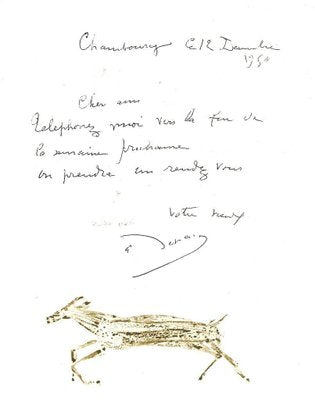 Chambourcy le 12 Décembre
1950
Cher ami
telephonez moi vers la fin de
la semaine prochaine
on prendra un rendez vous
Votre vieux
a Derain